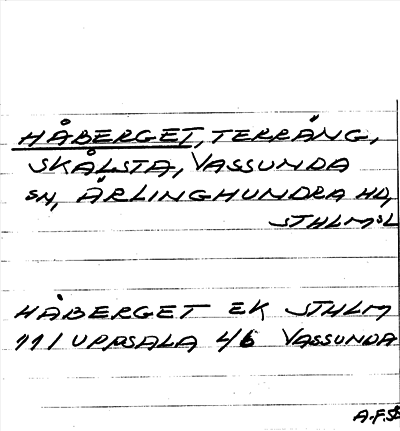 HÅBERGET, TERRÄNG,
SKÅLSTA, VASSUNDA
SN, ÄRLINGHUNDRA HD,
STHLM:SL
HÅBERGET EK STHLM
111 UPPSALA 4/6 VASSUNDA